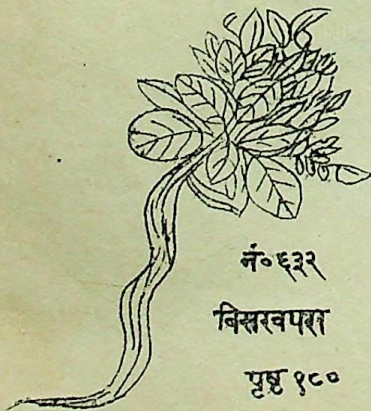 नं० ६३२
बिसखपरा
पृष्ठ १८०